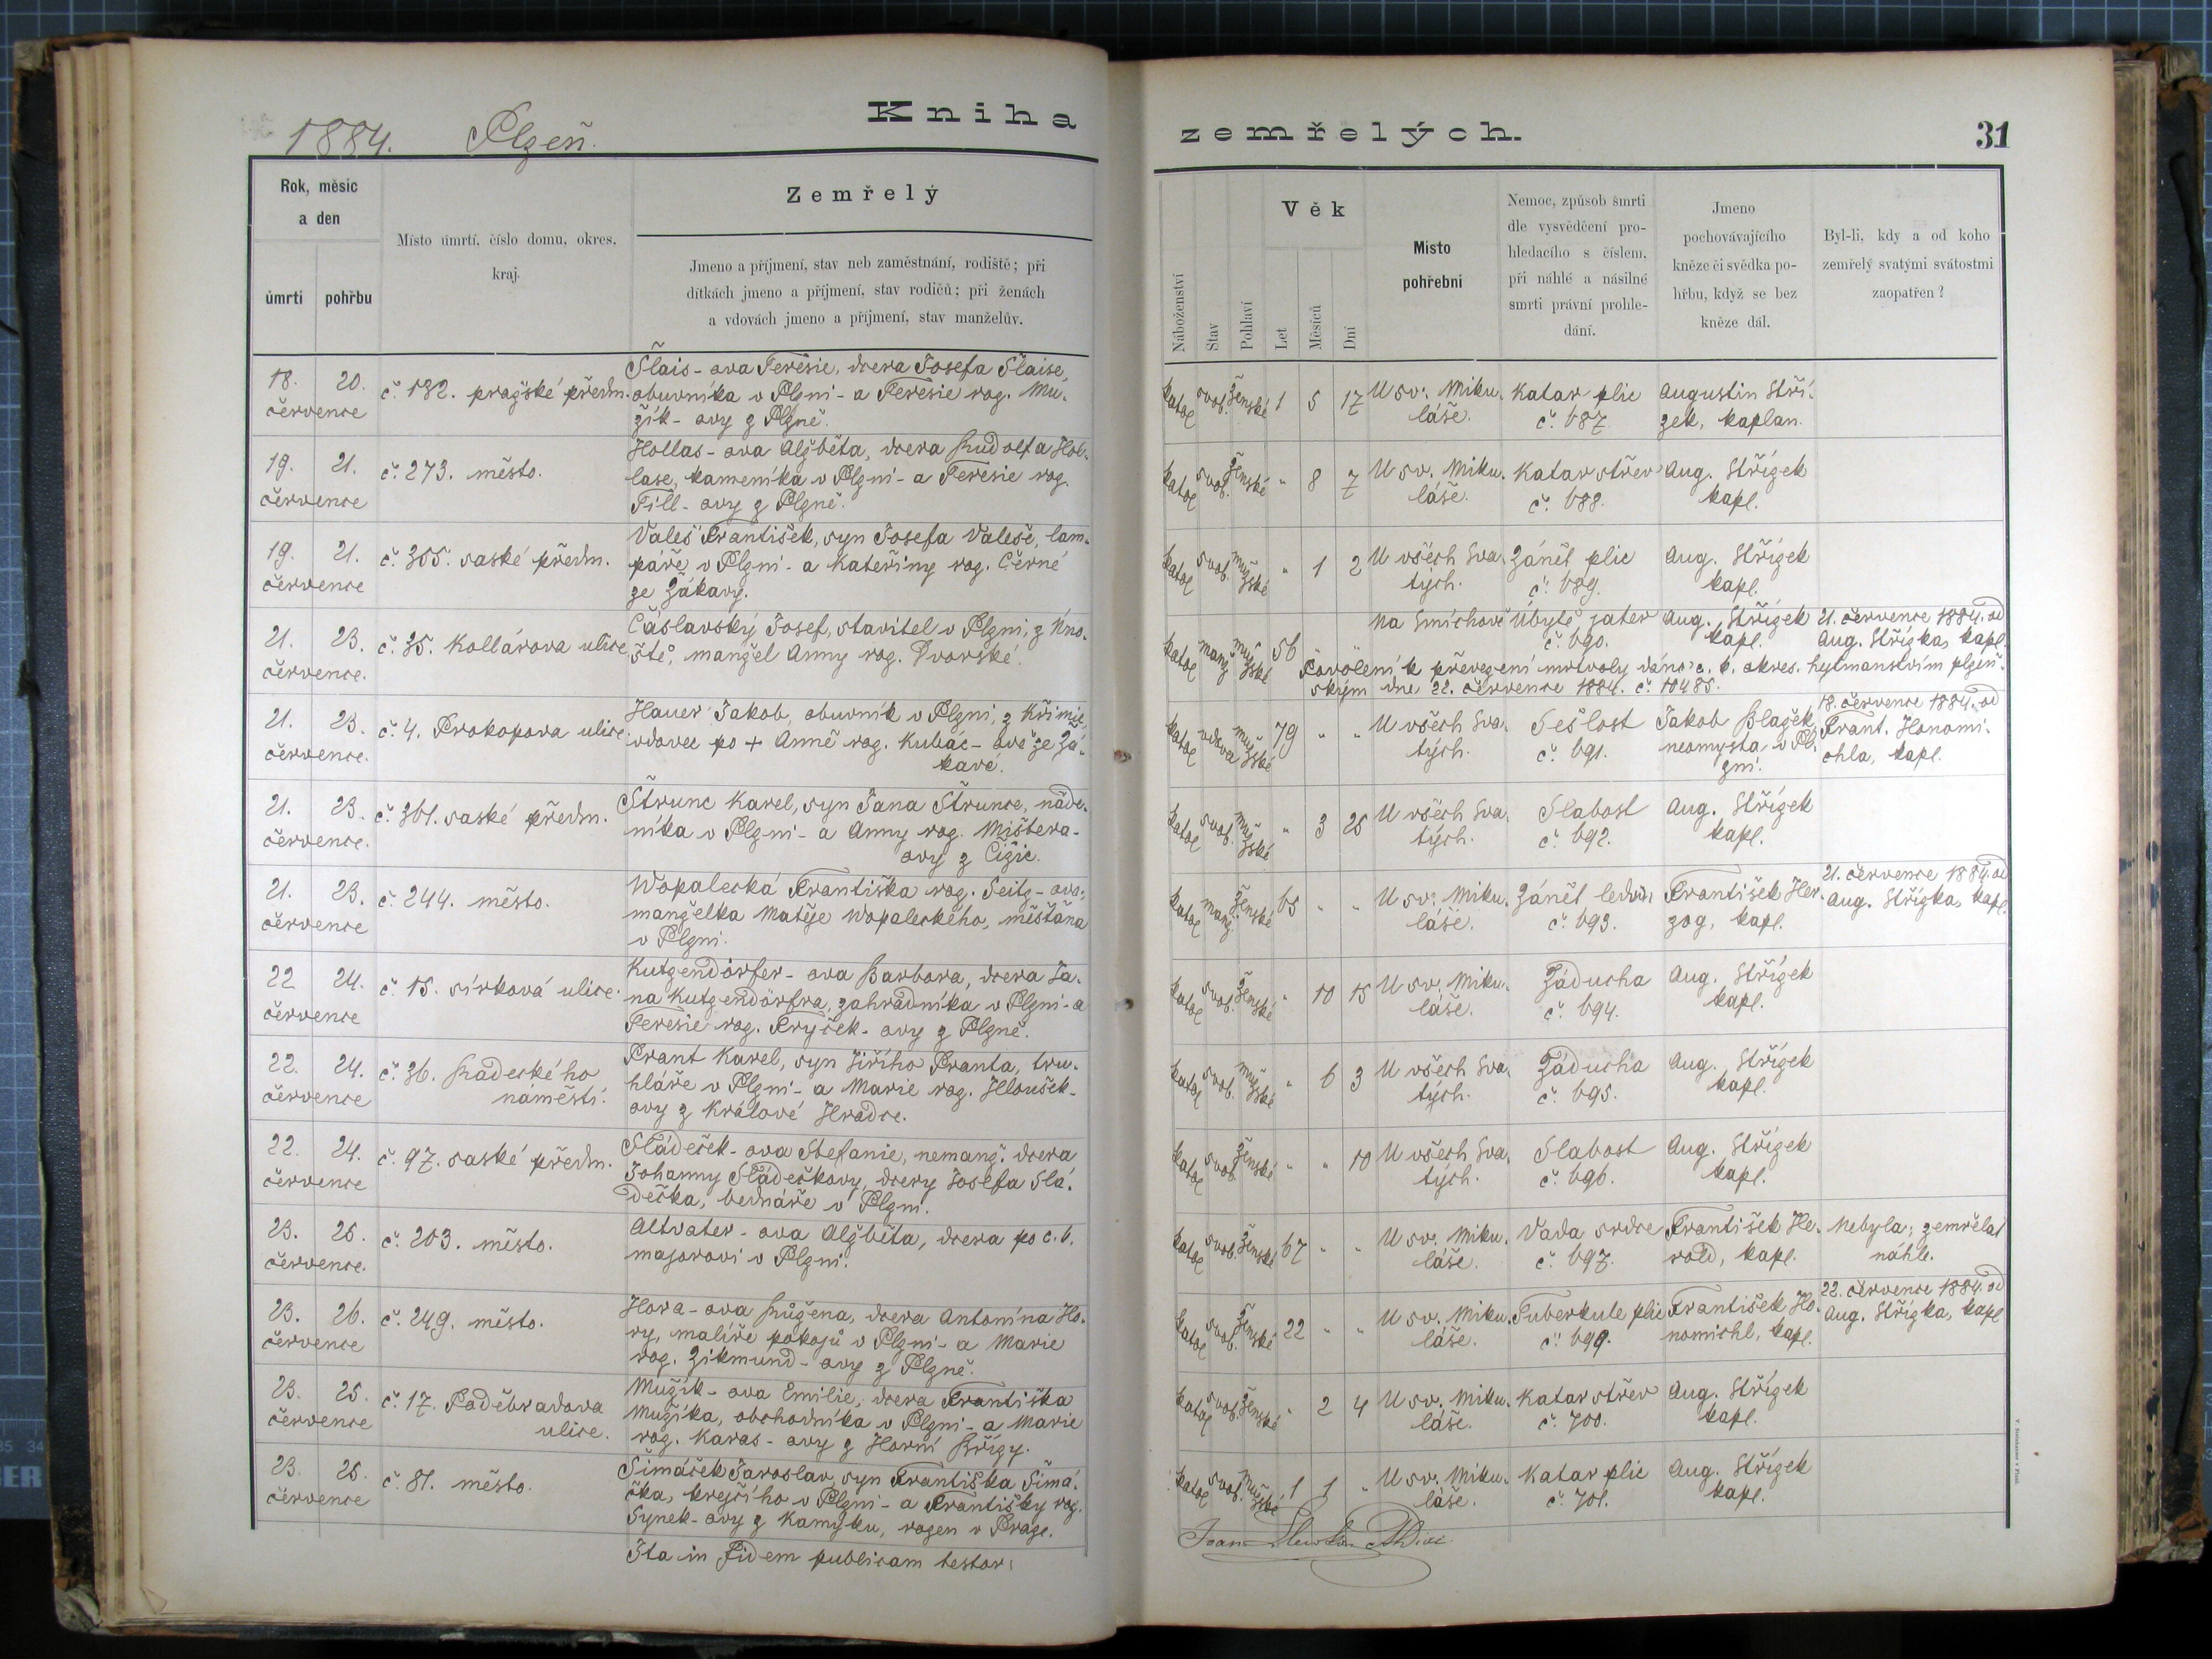 1884. Plzeň.
Kniha
zemřelých.
31
Rok, měsíc
a den
úmrtí
pohřbu
Místo úmrtí, číslo domu, okres, kraj.
Zemřelý
Jmeno a příjmení, stav neb zaměstnání, rodiště; při
dítkách jmeno a příjmení, stav rodičů; při ženách
a vdovách jmeno a příjmení, stav manželův.
Náboženství
Stav
Pohlaví
Věk
Let
Měsíců
Dní
Místo
pohřební
Nemoc, způsob smrti
dle vysvědčení pro-
hledacího s číslem,
při náhlé a násilné
smrti právní prohle-
dání.
Jmeno
pochovávajícího
kněze či svědka po-
hřbu, když se bez
kněze dál.
Byl-li, kdy a od koho
zemřelý svatými svátostmi
zaopatřen?
18. 20.
července
č. 182. pražské předm.
Šlais-ova Teresie, dcera Josefa Šlaise,
obuvníka v Plzni - a Teresie roz. Mu-
žík-ovy z Plzně.
katol svob. ženské 1 5 17
U sv. Miku-
láše.
Katar plic
č. 687.
Augustin Stří-
zek, kaplan.
19. 21.
července
č. 273. město.
Hollas-ova Alžběta, dcera Rudolfa Hol-
lase, kameníka v Plzni - a Teresie roz.
Till-ovy z Plzně.
katol svob. ženské " 8 7
U sv. Miku-
láše.
Katar střev
č. 688.
Aug. Střízek
kapl.
19. 21.
července
č. 355. saské předm.
Valeš František, syn Josefa Valeše, lam-
páře v Plzni - a Kateřiny roz. Černé
ze Zákavy.
katol svob. mužské " 1 2
U všech Sva-
tých.
Zánět plic
č. 689.
Aug. Střízek
kapl.
21. 23.
července.
č. 35. Kollárova ulice.
Čáslavský Josef, stavitel v Plzni, z Úno-
ště, manžel Anny roz. Dvorské.
katol manž mužské 56
Na Smíchově
Úbytě jater
č. 690.
Aug. Střízek
kapl.
21. července 1884. od
Aug. Střízka, kapl.
Povolení k převezení mrtvoly dáno c. k. okres. hejtmanstvím plzeň-
ským dne 22. července 1884. č. 10485.
21. 23.
července.
č. 4. Prokopova ulice.
Hauer Jakob, obuvník v Plzni, z Křimic,
vdovec po + Anně roz. Kubác-ově ze Zá-
kavé.
katol vdova mužské 79 " "
U všech Sva-
tých.
Sešlost
č. 691.
Jakob Blažek,
neomysta v Pl-
zni.
18. července 1884. od
Frant. Honomi-
chla, kapl.
21. 23.
července.
č. 361. saské předm.
Štrunc Karel, syn Jana Štrunce, náde-
níka v Plzni - a Anny roz. Mištera-
ovy z Čižic.
katol svob. mužské " 3 25
U všech Sva-
tých.
Slabost
č. 692.
Aug. Střízek
kapl.
21. 23.
července
č. 244. město.
Wopalecká Františka roz. Seitz-ova,
manželka Matěje Wopaleckého, měšťana
v Plzni.
katol manž. ženské 65 " "
U sv. Miku-
láše.
Zánět ledvin
č. 693.
František Her-
zog, kapl.
21. července 1884. od
Aug. Střízka, kapl.
22 24.
července
č. 15. sirková ulice.
Kutzendörfer-ova Barbora, dcera Ja-
na Kutzendörfra, zahradníka v Plzni - a
Teresie roz. Fryček-ovy z Plzně.
katol svob. ženské " 10 15
U sv. Miku-
láše.
Záducha
č. 694.
Aug. Střízek
kapl.
22. 24.
července
č. 36. Radeckého
náměstí.
Prant Karel, syn Jiřího Pranta, tru-
hláře v Plzni - a Marie roz. Hloušek-
ovy z Králové Hradce.
katol svob. mužské " 6 3
U všech Sva-
tých.
Záducha
č. 695.
Aug. Střízek
kapl.
22. 24.
července
č. 97. saské předm.
Sládeček-ova Stefanie, nemanž. dcera
Johanny Sládečkovy, dcery Josefa Slá-
dečka, bednáře v Plzni.
katol svob. ženské " " 10
U všech Sva-
tých.
Slabost
č. 696.
Aug. Střízek
kapl.
23. 25.
července.
č. 203. město.
Altvater-ova Alžběta, dcera po c. k.
majorovi v Plzni.
katol svob. ženské 67 " "
U sv. Miku-
láše.
Vada srdce
č. 697.
František He-
rold, kapl.
Nebyla; zemřela
náhle.
23. 26.
července
č. 249. město.
Hora-ova Růžena, dcera Antonína Ho-
ry, malíře pokojů v Plzni - a Marie
roz. Zikmund-ovy z Plzně.
katol svob. ženské 22 " "
U sv. Miku-
láše.
Tuberkule plic
č. 699.
František Ho-
nomichl, kapl.
22. července 1884. od
Aug. Střízka, kapl
23. 25.
července
č. 17. Poděbradova
ulice.
Mužík-ova Emilie, dcera Františka
Mužíka, obchodníka v Plzni - a Marie
roz. Karas-ovy z Horní Břízy.
katol svob. ženské " 2 4
U sv. Miku-
láše.
Katar střev
č. 700.
Aug. Střízek
kapl.
23. 25.
července
č. 81. město.
Šimáček Jaroslav, syn Františka Šimá-
čka, krejčího v Plzni - a Františky roz.
Synek-ovy z Kamýku, rozen v Praze.
katol svob. mužské 1 1 "
U sv. Miku-
láše.
Katar plic
č. 701.
Aug. Střízek
kapl.
Ita in fidem publicam testor: